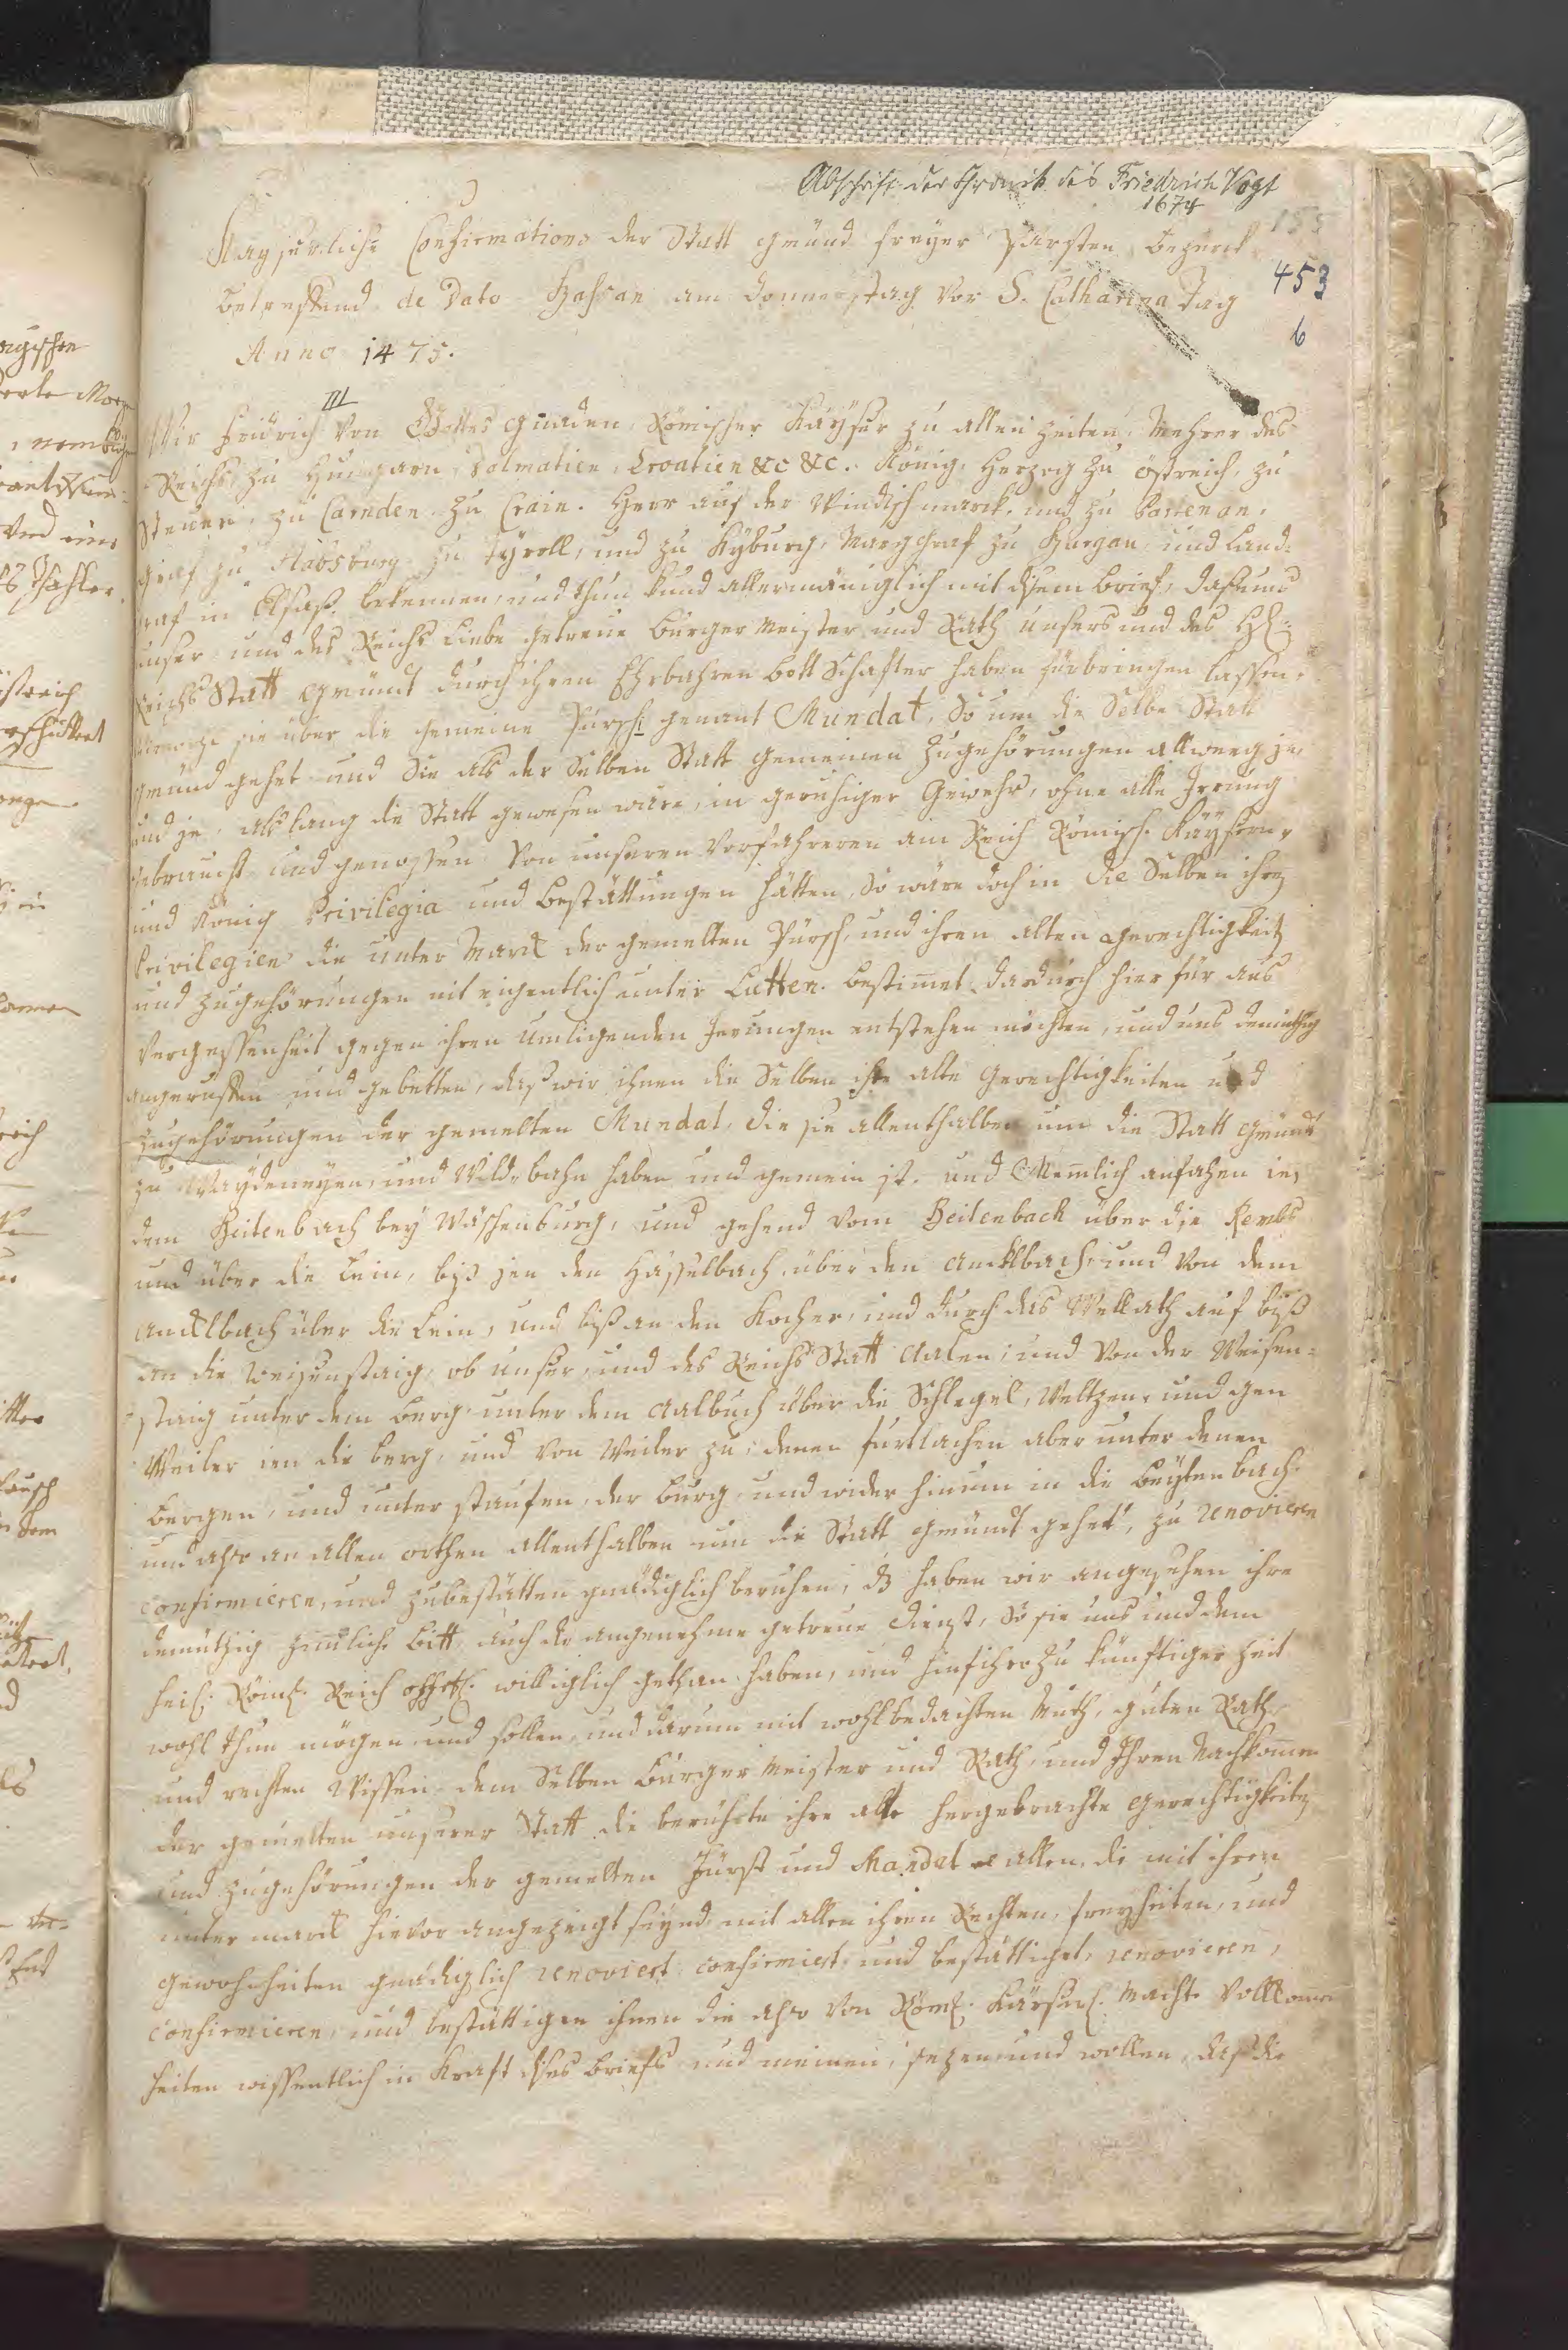 Abschrift der Chronik des Friedrich Vogt
1674
155
453
6
Kayserliche Confirmations der Statt gmünd freyer Pürsten bezürck
betreffend de Dato am Donnerstag vor S. Catharina Tag
Anno 1475.
III
Wir Fridrich von Gottes gnaden, Römischer Kayser zu allen zeiten, Mehrer des
Reichs, zu Hungarn, Dalmatien, Croatien &c &c. König, Herzog zu östreich, zu
Steuer, zu Carnden zu Crain. Herr auf der Windischmarck, und zu Portenau,
graf zu Habsburg zu Tyroll, und zu Kyburg, Marggraf zu Burgau, und Land-
graf in Elsaß, bekennen, und thun kund allermäniglich mit disem brief, daß uns
unser und des Reichs Liebe getreue burger Meister und Rath unsers und des Hl:
Reichs Statt gmünd durch ihren Ehrbahren bottschafter haben fürbringen lassen,
sie über die gemeine Pürsch genant Mundat, So um die Selbe Statt
gmünd gehet und Sie als der Selben Statt gemeinen zugehörungen allweeg je
und je, alß lang die Statt gewesen wäre, in geruhiger gewehr, ohne alle Irrung
gebraucht und genossen, von unseren Vorfahreren am Reich Römisch. Kaysern,
und König Privilegia und bestättungen hätten, So wäre doch in die Selben ihre
Privilegien die unter Marck der gemelten Pürsch, und ihren alten gerechtigkeit
und zugehörungen nit eigentlich unter Lutten. bestimet dardurch hier für aus
vergessenheit gegen ihren umligenden Irrungen entstehen möchten, und uns demüthig
angeruffen und gebetten, daß wir ihnen die Selben ihre alte gerechtigkeiten und
zugehörungen der gemelten Mundat, die sie allenthalben um die Statt gmünd
zu Waydeneyen, und Wildbahn haben und gemein ist. und Nemlich anfahen in
dem Beitenbach bey Wäschenburg, und gehend vom Beitenbach über die Rembs
und über die Lein, biß jen den Hasselbach, über den Aucklbach und von dem
Aucklbach über die Lein, und biß an den Kocher, und durch das Wellath auf biß
an die Weisenstaig, ob unser, und des Reichs Statt Aalen, und von der Weisen-
staig unter dem berg, unter dem Aalbuch über die Schlegel, Weltzen, und gen
Weiler ien die berg, und von Weiler zu, denen furtlachen aber unter denen
bergen, und unter staufen, der burg und wider hinum in die Beytenbach
und also an allen orthen allenthalben um die Statt gmünd gehet, zu renovieren
confirmieren, und zubestätten gnädiglich beruhen, dz haben wir angesehen ihre
demüthig zimliche bitt, auch die angenehme getreue Dienst, So sie uns und dem
heil: Röml: Reich williglich gethan haben, und hinführo zu künftiger zeit
wohl thun mögen und sollen, und darum mit wohlbedachten Muth, guten Rath,
und rechten Wissen, dem Selben burger Meister und Rath, und Ihren Nachkomen
der gemelten unserer Statt die berührte ihre alte hergebrachte gerechtigkeiten
und zugehörungen der gemelten Pürst und Mandat allen, die mit ihren
unter marck hievor angezeigt seynd, mit allen ihren Rechten, freyheiten, und
gewohnheiten gnädiglich renoviert, confirmiert, und bestättiget, renovieren,
confirmieren, und bestättigen ihnen die also von Röml: Kayserl: Macht vollkomen
heiten wissentlich in Kraft dises briefs und meinen, sezen und wollen, daß die